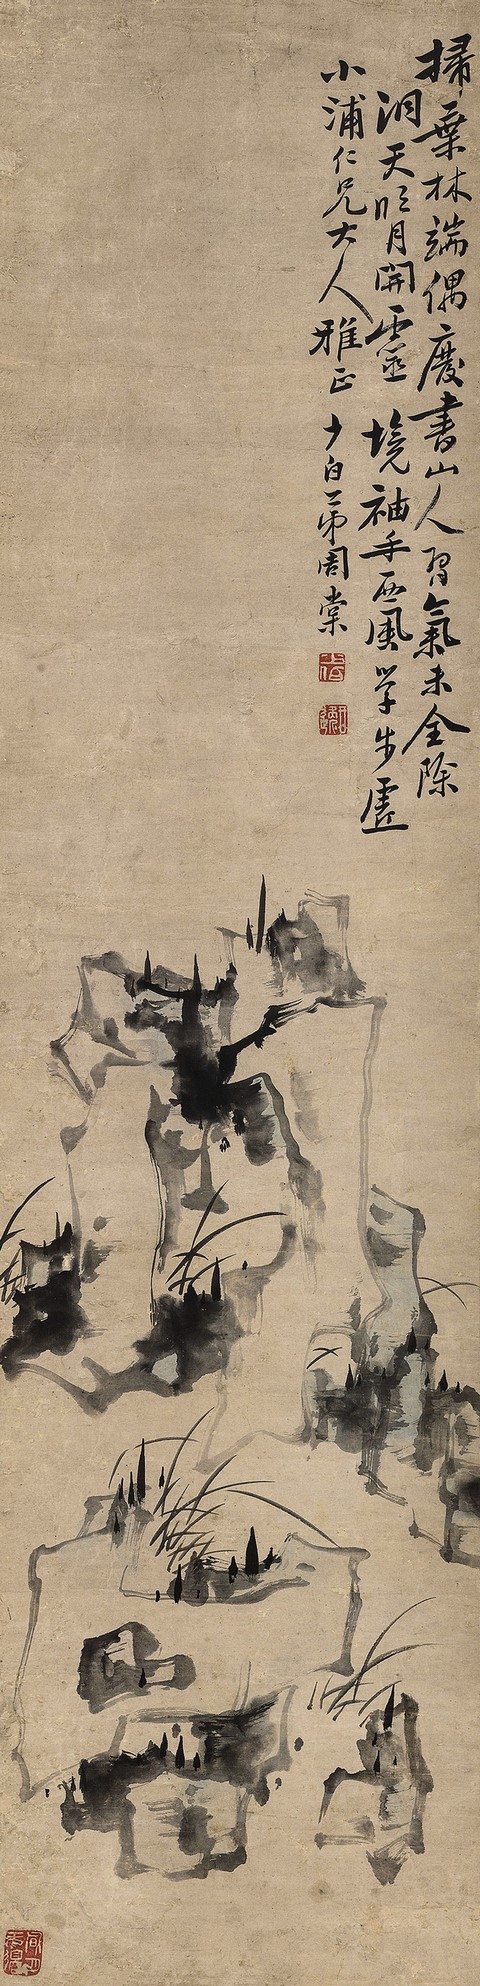 掃葉林端偶廢書山人習氣未全除
洞天明月開靈境袖手西風學步虛
小浦仁兄大人雅正少白弟周棠